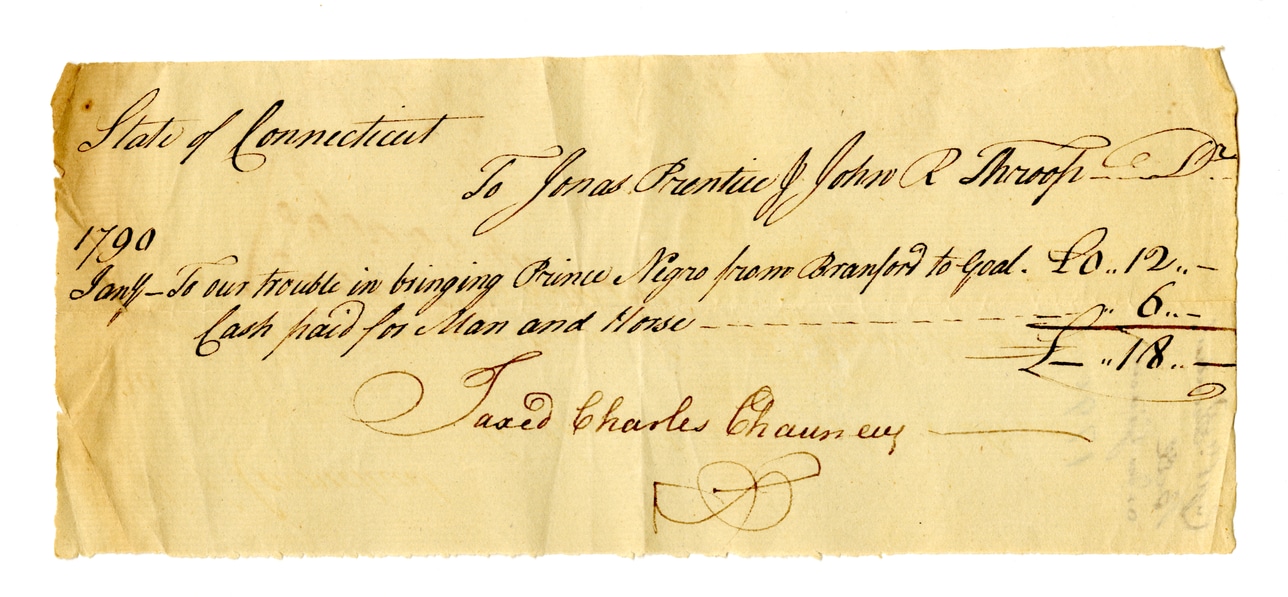 State of Connecticut
To Jonas Prentice & John R Throop Dr
1790
Jany — To our trouble in bringing Prince Negro from Branford to Goal. £0..12..—
Cash paid for Man and Horse — — — — — — — " 6..—
£— "18..—
Taxed Charles Chauncey